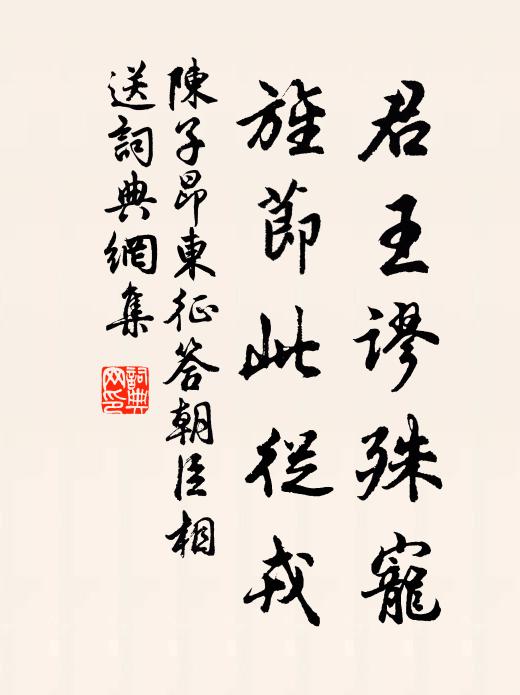 君王謬殊寵
旌節此從戎
陳子昂東征答朝臣相
送詞典網集
詞典
网印